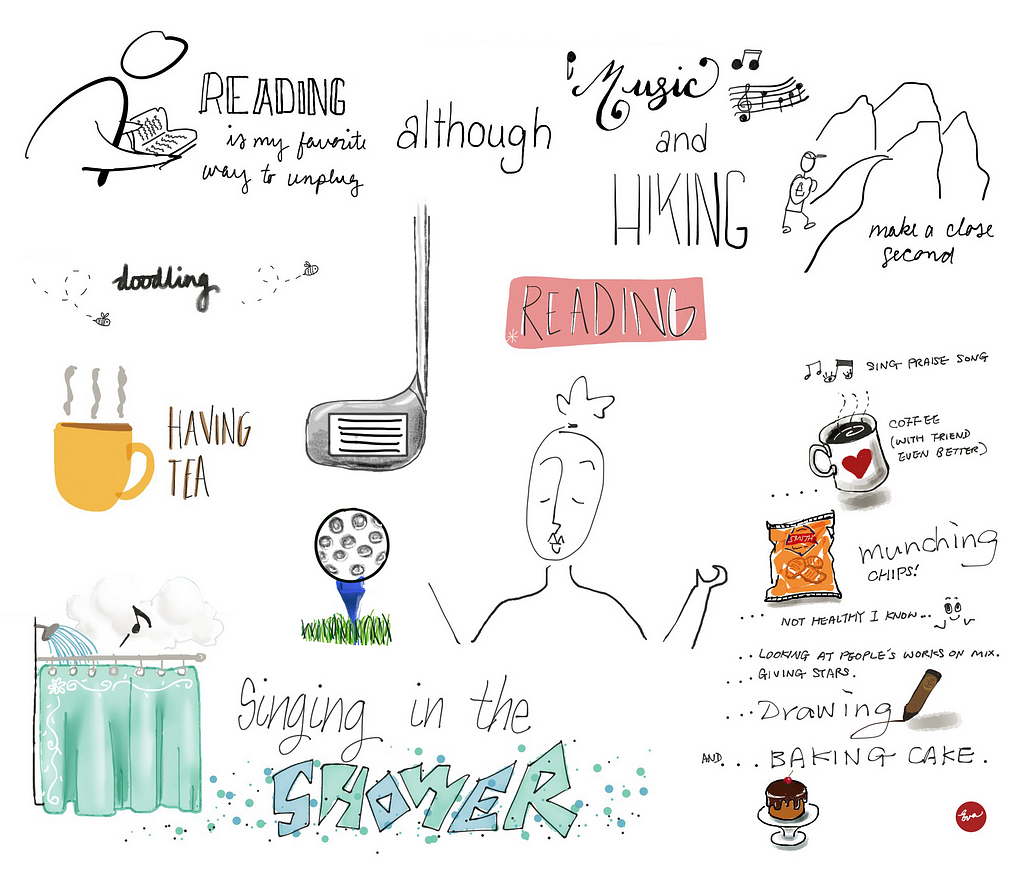 READING
is my favorite
way to unplug
although
Music
and
HIKING
make a close
second
doodling
READING
HAVING
TEA
SING PRAISE SONG
COFFEE
(WITH FRIEND
EVEN BETTER)
.....
SMITH
munching
CHIPS!
... NOT HEALTHY I KNOW...
.. LOOKING AT PEOPLE'S WORKS ON MIX.
... GIVING STARS.
... Drawing
AND.... BAKING CAKE.
Singing in the
SHOWER
Eva